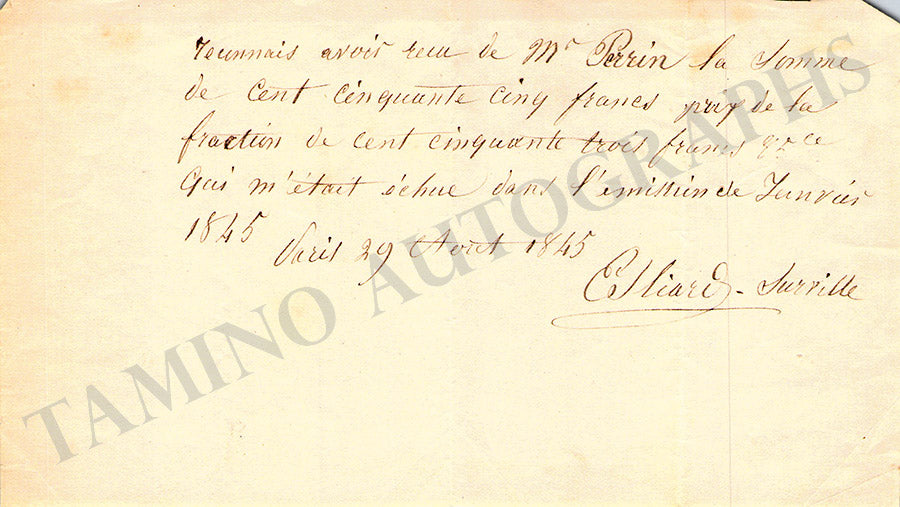 reconnais avoir recu de Mr Perrin la somme
de Cent cinquante cinq francs prix de la
fraction de cent cinquante trois francs
Qui m'était échue dans l'émission de Janvier
1845
Paris 29 Aout 1845
Surville
TAMINO AUTOGRAPHS